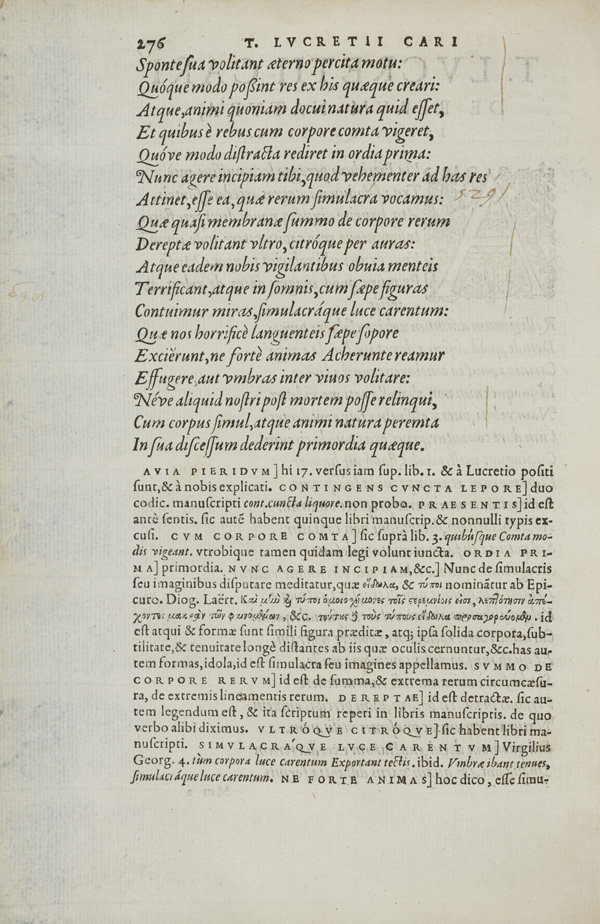 276 T. LVCRETII CARI
Sponte sua volitant æterno percita motu:
Quóque modo poßint res ex his quæque creari:
Atque, animi quoniam docui natura quid esset,
Et quibus è rebus cum corpore comta vigeret,
Quóve modo distracta rediret in ordia prima:
Nunc agere incipiam tibi, quod vehementer ad has res
Attinet, esse ea, quæ rerum simulacra vocamus: 529
Quæ quasi membranæ summo de corpore rerum
Dereptæ volitant vltro, citróque per auras:
Atque eadem nobis vigilantibus obuia menteis
Terrificant, atque in somnis, cum sæpe figuras
Contuimur miras, simulacráque luce carentum:
Quæ nos horrificè languenteis sæpe sopore
Excierunt, ne fortè animas Acherunte reamur
Effugere, aut vmbras inter viuos volitare:
Néve aliquid nostri post mortem posse relinqui,
Cum corpus simul, atque animi natura peremta
In sua discessum dederint primordia quæque.
AVIA PIERIDVM] hi 17. versus iam sup. lib. 1. & à Lucretio positi
sunt, & à nobis explicati. CONTINGENS CVNCTA LEPORE] duo
codic. manuscripti cont. cuncta liquore. non probo. PRAESENTIS] id est
antè sentis. sic autē habent quinque libri manuscrip. & nonnulli typis ex-
cusi. CVM CORPORE COMTA] sic suprà lib. 3. quibúsque Comta mo-
dis vigeant. vtrobique tamen quidam legi volunt iuncta. ORDIA PRI-
MA] primordia. NVNC AGERE INCIPIAM, &c.] Nunc de simulacris
seu imaginibus disputare meditatur, quæ εἴδωλα, & τύποι nominātur ab Epi-
curo. Diog. Laërt. Καὶ μὴν καὶ τύποι ὁμοιοσχήμονες τοῖς στερεμνίοις εἰσι, λεπτότησιν ἀπέ-
χοντες μακρὰν τῶν φαινομένων, &c. τούτους δὲ τοὺς τύπους εἴδωλα προσαγορεύομεν. id
est atqui & formæ sunt simili figura præditæ, atq; ipsa solida corpora, sub-
tilitate, & tenuitate longè distantes ab iis quæ oculis cernuntur, &c. has au-
tem formas, idola, id est simulacra seu imagines appellamus. SVMMO DE
CORPORE RERVM] id est de summa, & extrema rerum circumcæsu-
ra, de extremis lineamentis rerum. DEREPTAE] id est detractæ. sic au-
tem legendum est, & ita scriptum reperi in libris manuscriptis. de quo
verbo alibi diximus. VLTRÓQVE CITRÓQVE] sic habent libri ma-
nuscripti. SIMVLACRÁQVE LVCE CARENTVM] Virgilius
Georg. 4. tùm corpora luce carentum Exportant tectis. ibid. Vmbræ ibant tenues,
simulacráque luce carentum. NE FORTE ANIMAS] hoc dico, esse simu-